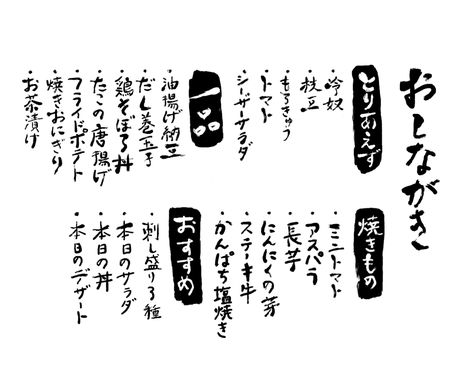 おしながき
とりあえず
・冷奴
・枝豆
・もろきゅう
・トマト
・シーザーサラダ
一品
・油揚げ納豆
・だし巻玉子
・鶏そぼろ丼
・たこの唐揚げ
・フライドポテト
・焼きおにぎり
・お茶漬け
焼きもの
・ミニトマト
・アスパラ
・長芋
・にんにくの芽
・ステーキ牛
・かんぱち塩焼き
おすすめ
・刺し盛り3種
・本日のサラダ
・本日の丼
・本日のデザート